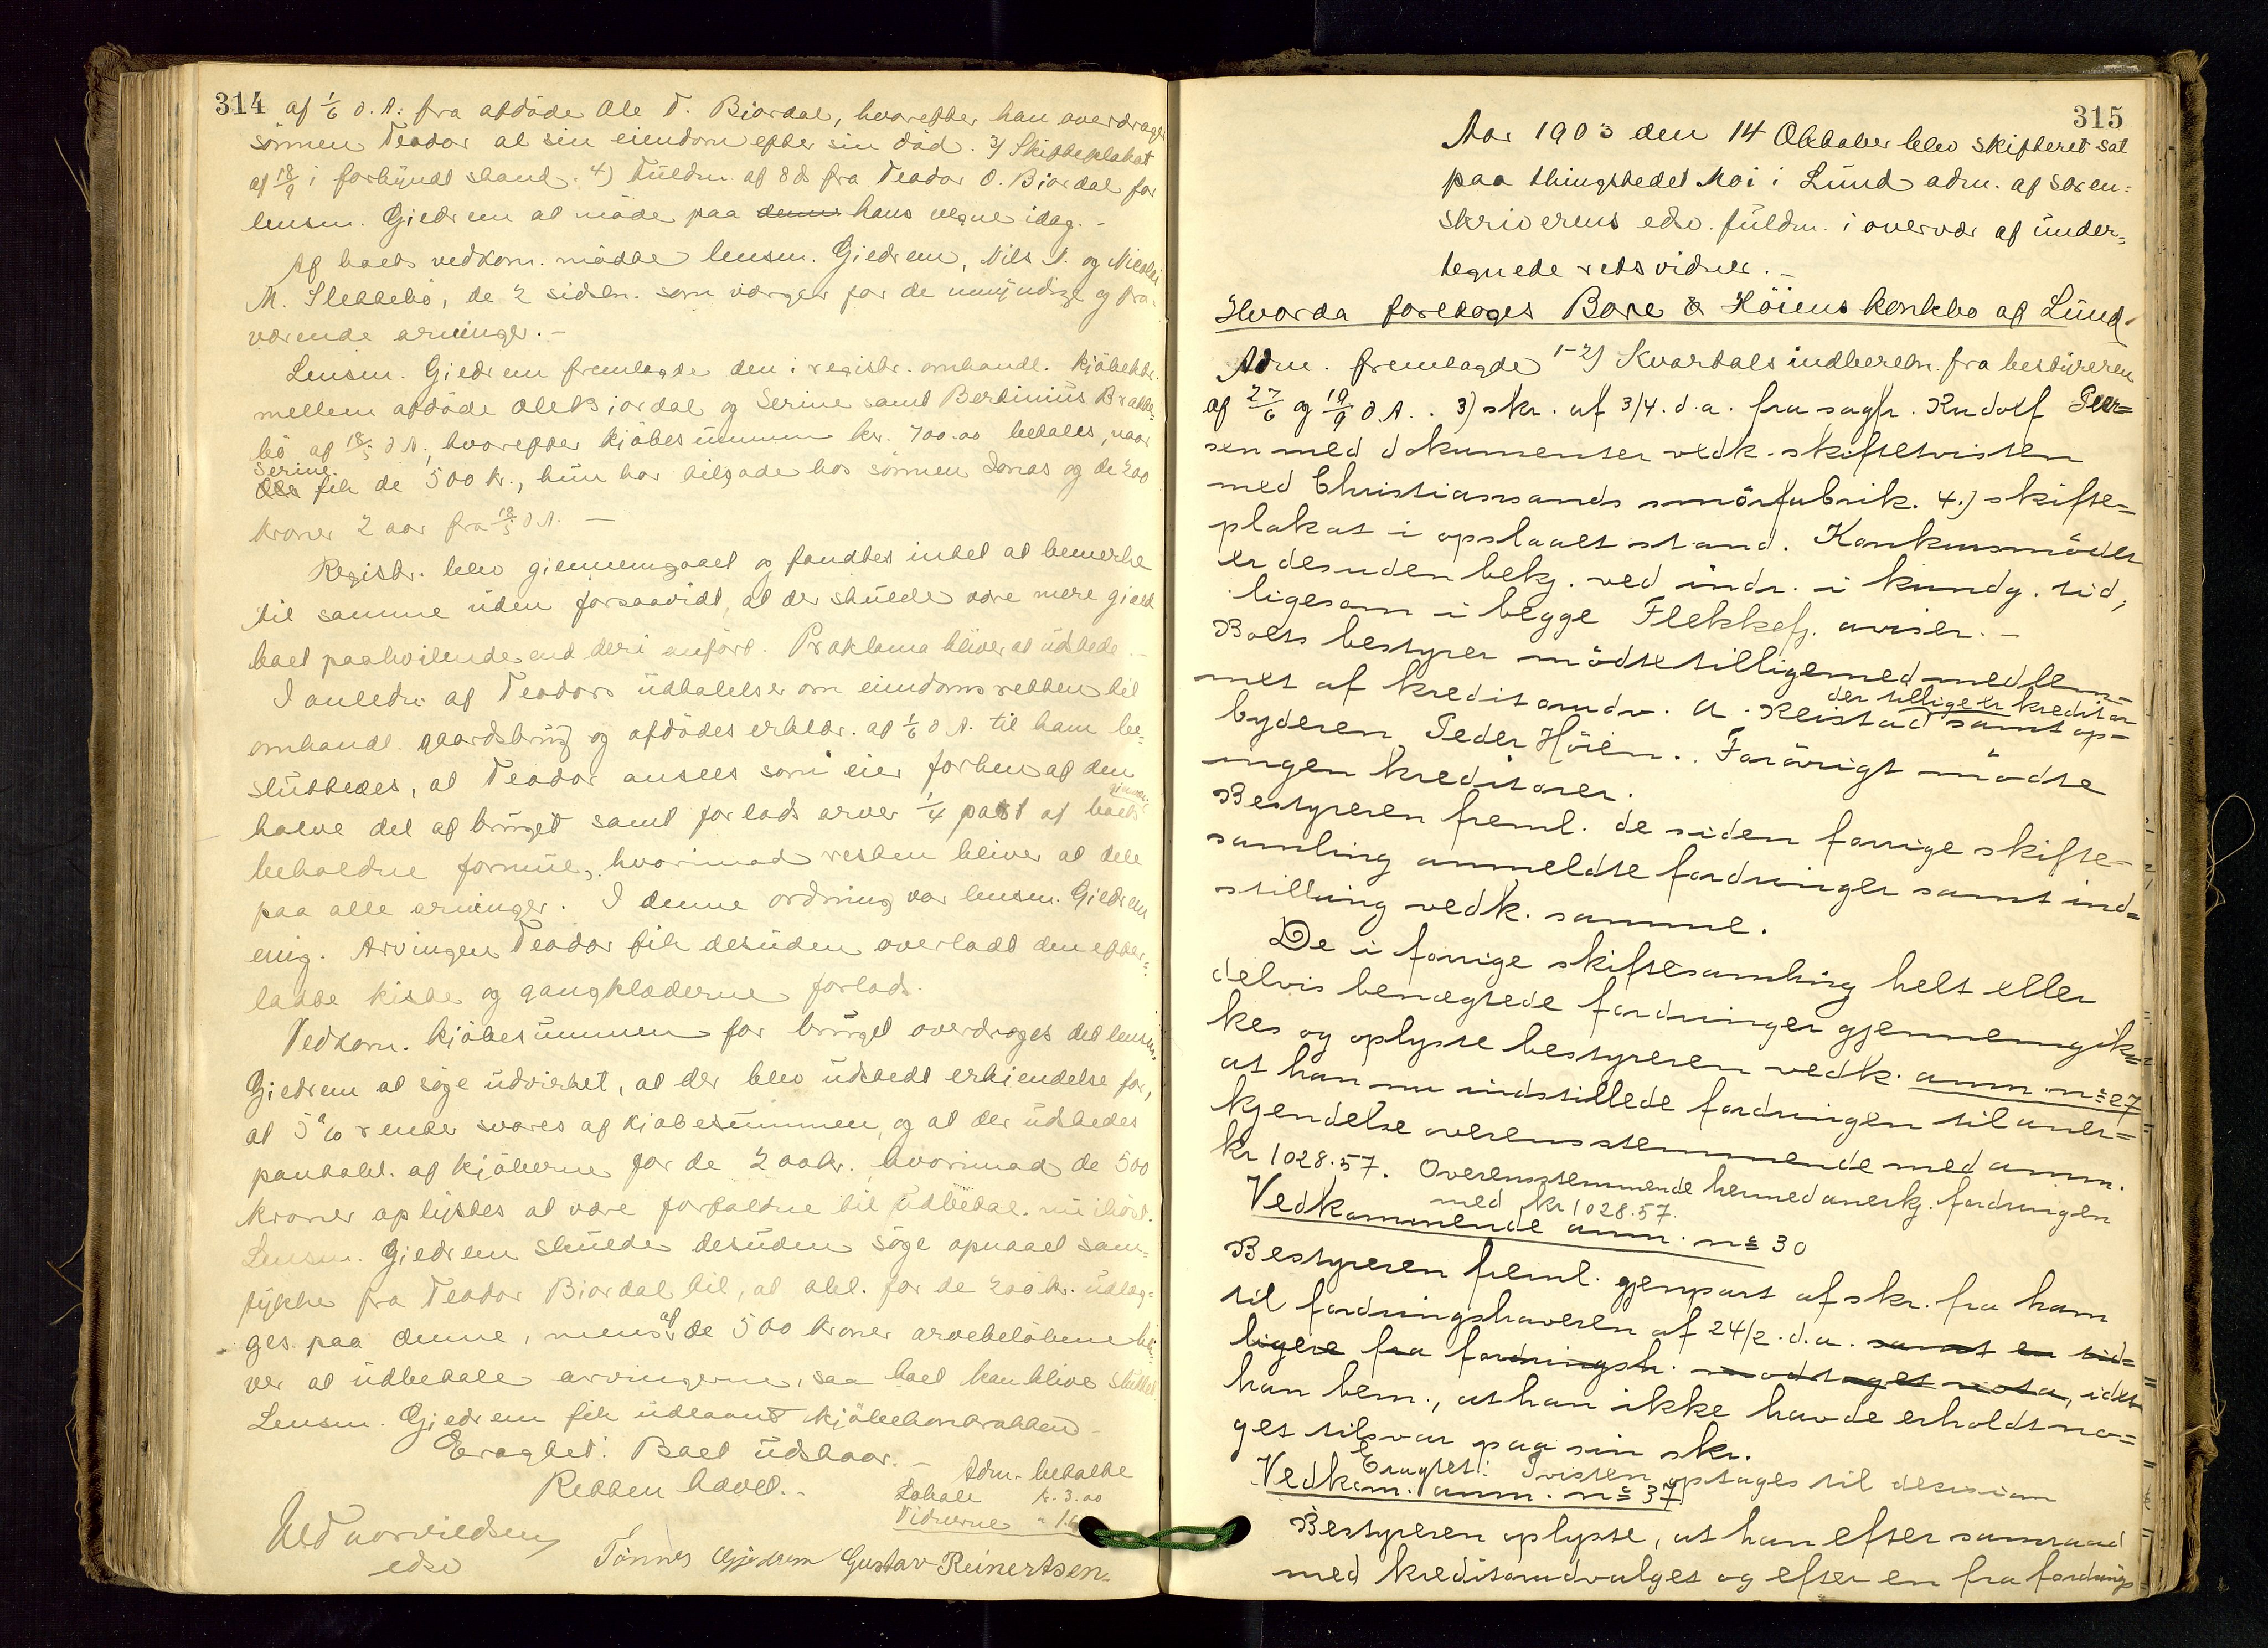 314
af 1/6 d.A. fra afdöde Ole T. Biordal, hvorefter han overdrager
sönnen Teodor al sin eiendom efter sin död. 3) Skifteplakat
af 18/9 i forkyndt stand. 4) Fuldm. af 8 ds fra Teodor O. Biordal for
lensm. Giedrem at möde paa hans vegne idag. -
Af boets vedkom. mödte lensm. Giedrem, Nils T. og Nicolai
M. Slettebö, de 2 sidstn. som værger for de umyndige og fra-
værende arvinger. -
Lensm. Giedrem fremlagde den i registr. omhandl. kjöbektr.
mellem afdöde Ole Biordal og Serine samt Bertinius Bratte-
bö af 18/5 d.A., hvorefter kjöbesummen kr. 700.00 betales, naar
Serine
fik de 500 kr., hun har tilgode hos sönnen Jonas og de 200
kroner 2 aar fra 18/5 d.A. -
Registr. blev giennemgaaet og fandtes intet at bemerke
til samme uden forsaavidt, at der skulde være mere giæld
boet paahvilende end deri anfört. Proklama bliver at udstede. -
I anledn. af Teodors udtalelser om eiendomsretten til
omhandl. gaardsbrug og afdödes erklær. af 1/6 d.A. til ham be-
sluttedes, at Teodor ansees som eier forhen af den
halve del af bruget samt forlods arver 1/4 part af boets
beholdne formue, hvorimod resten bliver at dele
paa alle arvinger. I denne ordning var lensm. Giedrem
enig. Arvingen Teodor fik desuden overladt den efter-
ladte kiste og gangklæderne forlods.
Vedkom. kjöbesummen for bruget overdroges det lensm.
Giedrem at söge udvirket, at der blev udstedt erkiendelse for,
at 5 % renter svares af kjöbesummen, og at der udstedes
pantobl. af kjöberne for de 200 kr., hvorimod de 500
kroner oplystes at være forfaldne til udbetal. nu ihöst.
Lensm. Giedrem skulde desuden söge opnaaet sam-
tykke fra Teodor Biordal til, at obl. for de 200 kr. udlæg-
ges paa denne, mens af de 500 kroner arvebelöbene bli-
ver at udbetale arvingerne, saa boet kan blive sluttet.
Lensm. Giedrem fik udlaant kjöbekontrakten -
Eragtet: Boet udstaar. -
Retten hævet. -
Adm. betalte
Lokale kr. 3.00
Vidnerne "
edsv
Tönnes Gjedrem Gustav Reinertsen.
315
Aar 1903 den 14 Oktober blev skifteret sat
paa thingstedet Moi i Lund adm. af soren=
skriverens edsv. fuldm. i overvær af under=
tegnede retsvidner. -
Hvorda foretoges Bore & Höiens konkbo af Lund.
Adm. fremlagde 1-2) Kvartalsindberetn. fra bestyreren
af 27/6 og 19/9 d.A. . 3) skr. af 3/4. d.a. fra sagfr. Rudolf Peer=
sen med dokumenter vedk. skiftetvisten
med Christianssands smörfabrik. 4.) skifte=
plakat i opslaaet stand. Konkursmödet
er desuden bekj. ved indr. i kundg. tid,
ligesom i begge Flekkefj. aviser. -
Boets bestyrer mödte tilligemed medlem=
met af kreditorudv. A. Reistad samt op-
der tillige er kreditor
byderen Peder Höien. . Forövrigt mödte
ingen kreditorer.
Bestyreren freml. de siden forrige skifte-
samling anmeldte fordringer samt ind=
stilling vedk. samme.
De i forrige skiftesamling helt eller
delvis benægtede fordringer gjennemgik=
kes og oplyste bestyreren vedk. anm. n= 27
at han nu indstillede fordringen til aner=
kjendelse overensstemmende med anm.
kr 1028.57. Overensstemmende hermed anerkj. fordringen
med kr 1028.57.
Vedkommende anm. n= 30
Bestyreren freml. gjenpart af skr. fra ham
til fordringshaveren af 24/2. d.a. samt en tid=
ligere fra fordringsh. modtaget nota, idet
han bem., at han ikke havde erholdt no=
get tilsvar paa sin skr.
Eragtet: Tvisten optages til decision
Vedkom. anm. n= 37
Bestyreren oplyste, at han efter samraad
med kreditorudvalget og efter en fra fordrings=